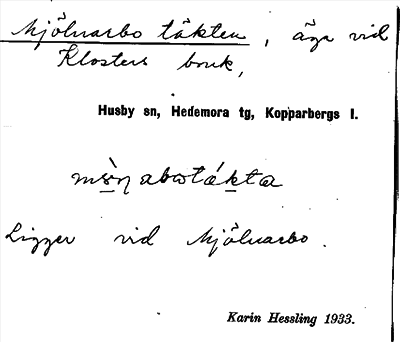 Mjölnarbo täkten, äga vid
Klosters bruk,
Husby sn, Hedemora tg, Kopparbergs l.
Ligger vid Mjölnarbo.
Karin Hessling 1933.